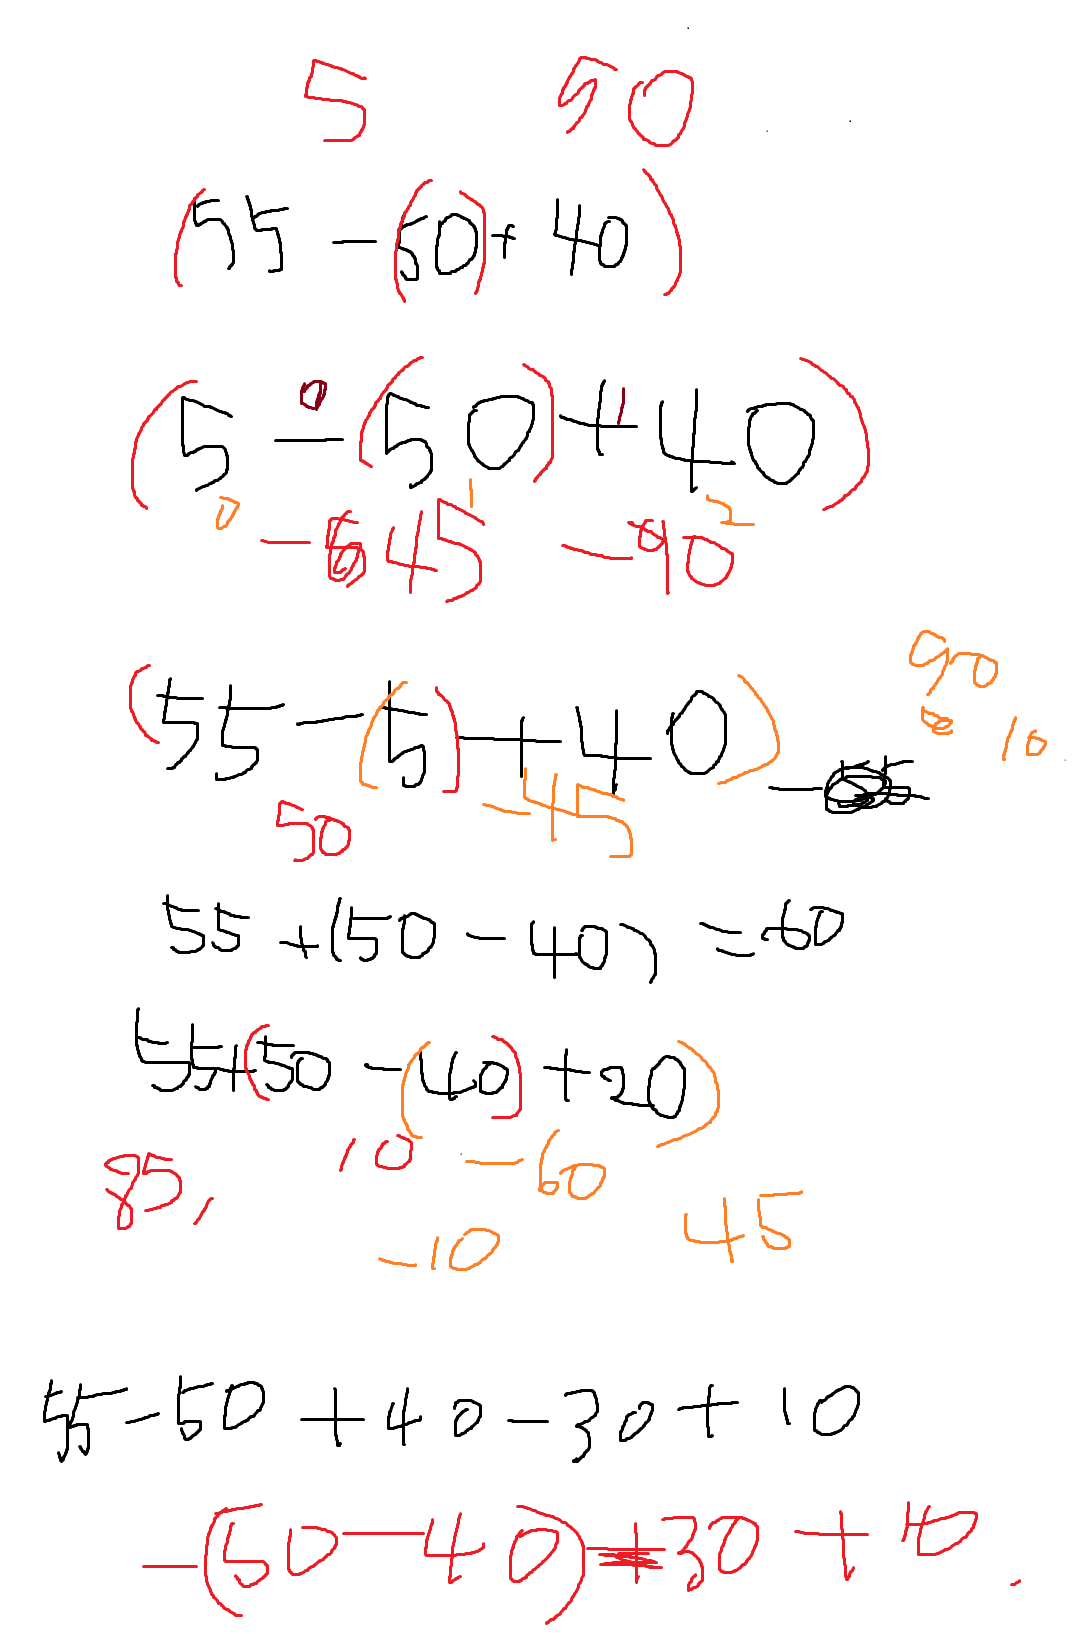 5 50
(55 - (50) + 40)
0 1
(5 - (50) + 40)
0 1 2
-45 -90
90
(55 - (5) + 40) -
10
50 -45
55 + (50 - 40) = 60
55 + (50 - (40) + 20)
85, 10 -60
-10 45
55 - 50 + 40 - 30 + 10
- (50 - 40) 30 + 10